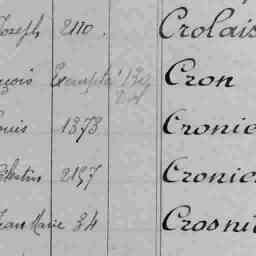 Joseph 2110. Crolais
çois Exempté Cron
ouis 1373 Cronie
élestin 2157 Cronie
Jean Marie 34 Crosni